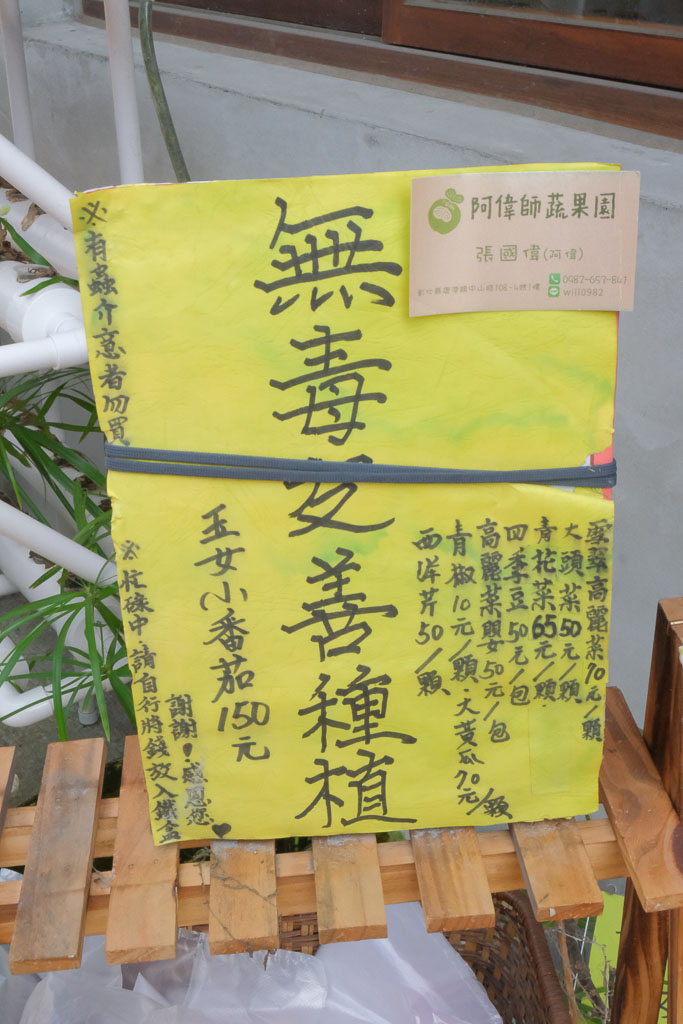 阿偉師蔬果園
張國偉(阿偉)
0982-657-847
will0982
無毒友善種植
雪翠高麗菜70元/顆
大頭菜50元/顆
青花菜65元/顆
四季豆50元/包
高麗菜嬰50元/包
青椒10元/顆.大黃瓜70元/顆
西洋芹50/顆
玉女小番茄150元
※有蟲介意者勿買
※忙碌中請自行將錢放入鐵盒
謝謝!感恩您♥